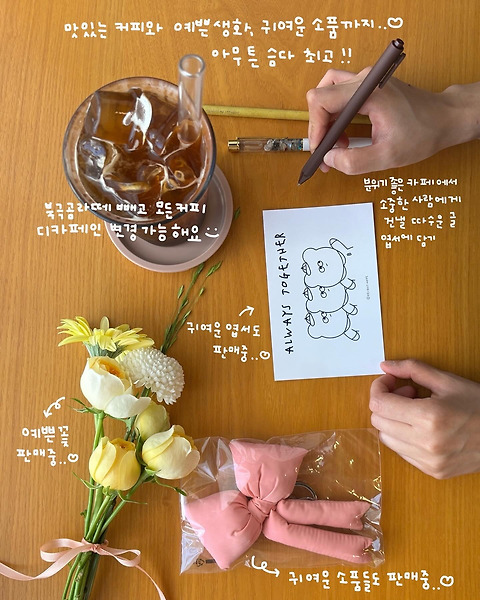 맛있는 커피와 예쁜 생화, 귀여운 소품까지..♡
아무튼 숨다 최고!!
북극곰라떼 빼고 모든커피
디카페인 변경가능해요
분위기 좋은 카페에서
소중한 사람에게
건넬 따수운 글
엽서에 담기
ALWAYS TOGETHER
귀여운 엽서도
판매중..♡
예쁜 꽃
판매중..♡
귀여운 소품들도 판매중..♡